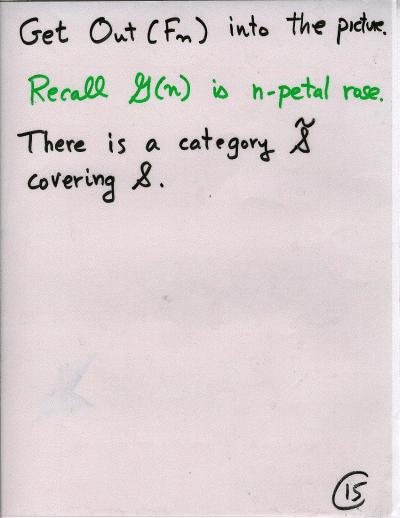 Get Out (Fn) into the picture.
Recall 𝒢(n) is n-petal rose.
There is a category 𝒮̃
covering 𝒮.
15